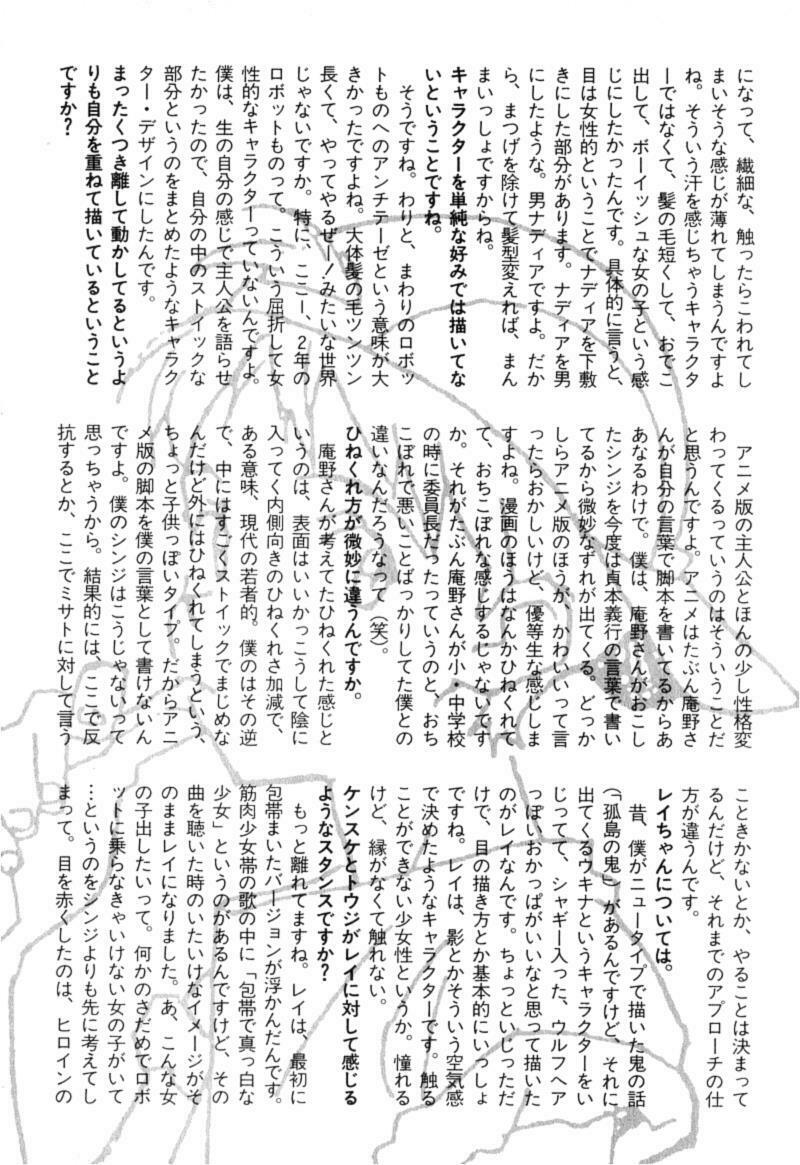 になって、繊細な、触ったらこわれてし
まいそうな感じが薄れてしまうんですよ
ね。そういう汗を感じちゃうキャラクタ
ーではなくて、髪の毛短くして、おでこ
出して、ボーイッシュな女の子という感
じにしたかったんです。具体的に言うと、
目は女性的ということでナディアを下敷
きにした部分があります。ナディアを男
にしたような。男ナディアですよ。だか
ら、まつげを除けて髪型変えれば、まん
まいっしょですからね。
キャラクターを単純な好みでは描いてな
いということですね。
そうですね。わりと、まわりのロボッ
トものへのアンチテーゼという意味が大
きかったですよね。大体髪の毛ツンツン
長くて、やってやるぜー！みたいな世界
じゃないですか。特に、ここ1、2年の
ロボットものって。こういう屈折して女
性的なキャラクターっていないんですよ。
僕は、生の自分の感じで主人公を語らせ
たかったので、自分の中のストイックな
部分というのをまとめたようなキャラク
ター・デザインにしたんです。
まったくつき離して動かしてるというよ
りも自分を重ねて描いているということ
ですか？
アニメ版の主人公とほんの少し性格変
わってくるっていうのはそういうことだ
と思うんですよ。アニメはたぶん庵野さ
んが自分の言葉で脚本を書いてるからあ
あなるわけで。僕は、庵野さんがおこし
たシンジを今度は貞本義行の言葉で書い
てるから微妙なずれが出てくる。どっか
しらアニメ版のほうが、かわいいって言
ったらおかしいけど、優等生な感じしま
すよね。漫画のほうはなんかひねくれて
て、おちこぼれな感じするじゃないです
か。それがたぶん庵野さんが小・中学校
の時に委員長だったっていうのと、おち
こぼれで悪いことばっかりしてた僕との
違いなんだろうなって（笑）。
ひねくれ方が微妙に違うんですか。
庵野さんが考えてたひねくれた感じと
いうのは、表面はいいかっこうして陰に
入ってく内側向きのひねくれさ加減で、
ある意味、現代の若者的。僕のはその逆
で、中にはすごくストイックでまじめな
んだけど外にはひねくれてしまうという、
ちょっと子供っぽいタイプ。だからアニ
メ版の脚本を僕の言葉として書けないん
ですよ。僕のシンジはこうじゃないって
思っちゃうから。結果的には、ここで反
抗するとか、ここでミサトに対して言う
こときかないとか、やることは決まって
るんだけど、それまでのアプローチの仕
方が違うんです。
レイちゃんについては。
昔、僕がニュータイプで描いた鬼の話
（「孤島の鬼」）があるんですけど、それに
出てくるウキナというキャラクターをい
じってて、シャギー入った、ウルフヘア
っぽいおかっぱがいいなと思って描いた
のがレイなんです。ちょっといじっただ
けで、目の描き方とか基本的にいっしょ
ですね。レイは、影とかそういう空気感
で決めたようなキャラクターです。触る
ことができない少女性というか。憧れる
けど、縁がなくて触れない。
ケンスケとトウジがレイに対して感じる
ようなスタンスですか？
もっと離れてますね。レイは、最初に
包帯まいたバージョンが浮かんだんです。
筋肉少女帯の歌の中に「包帯で真っ白な
少女」というのがあるんですけど、その
曲を聴いた時のいたいけなイメージがそ
のままレイになりました。あ、こんな女
の子出したいって。何かのさだめでロボ
ットに乗らなきゃいけない女の子がいて
…というのをシンジよりも先に考えてし
まって。目を赤くしたのは、ヒロインの